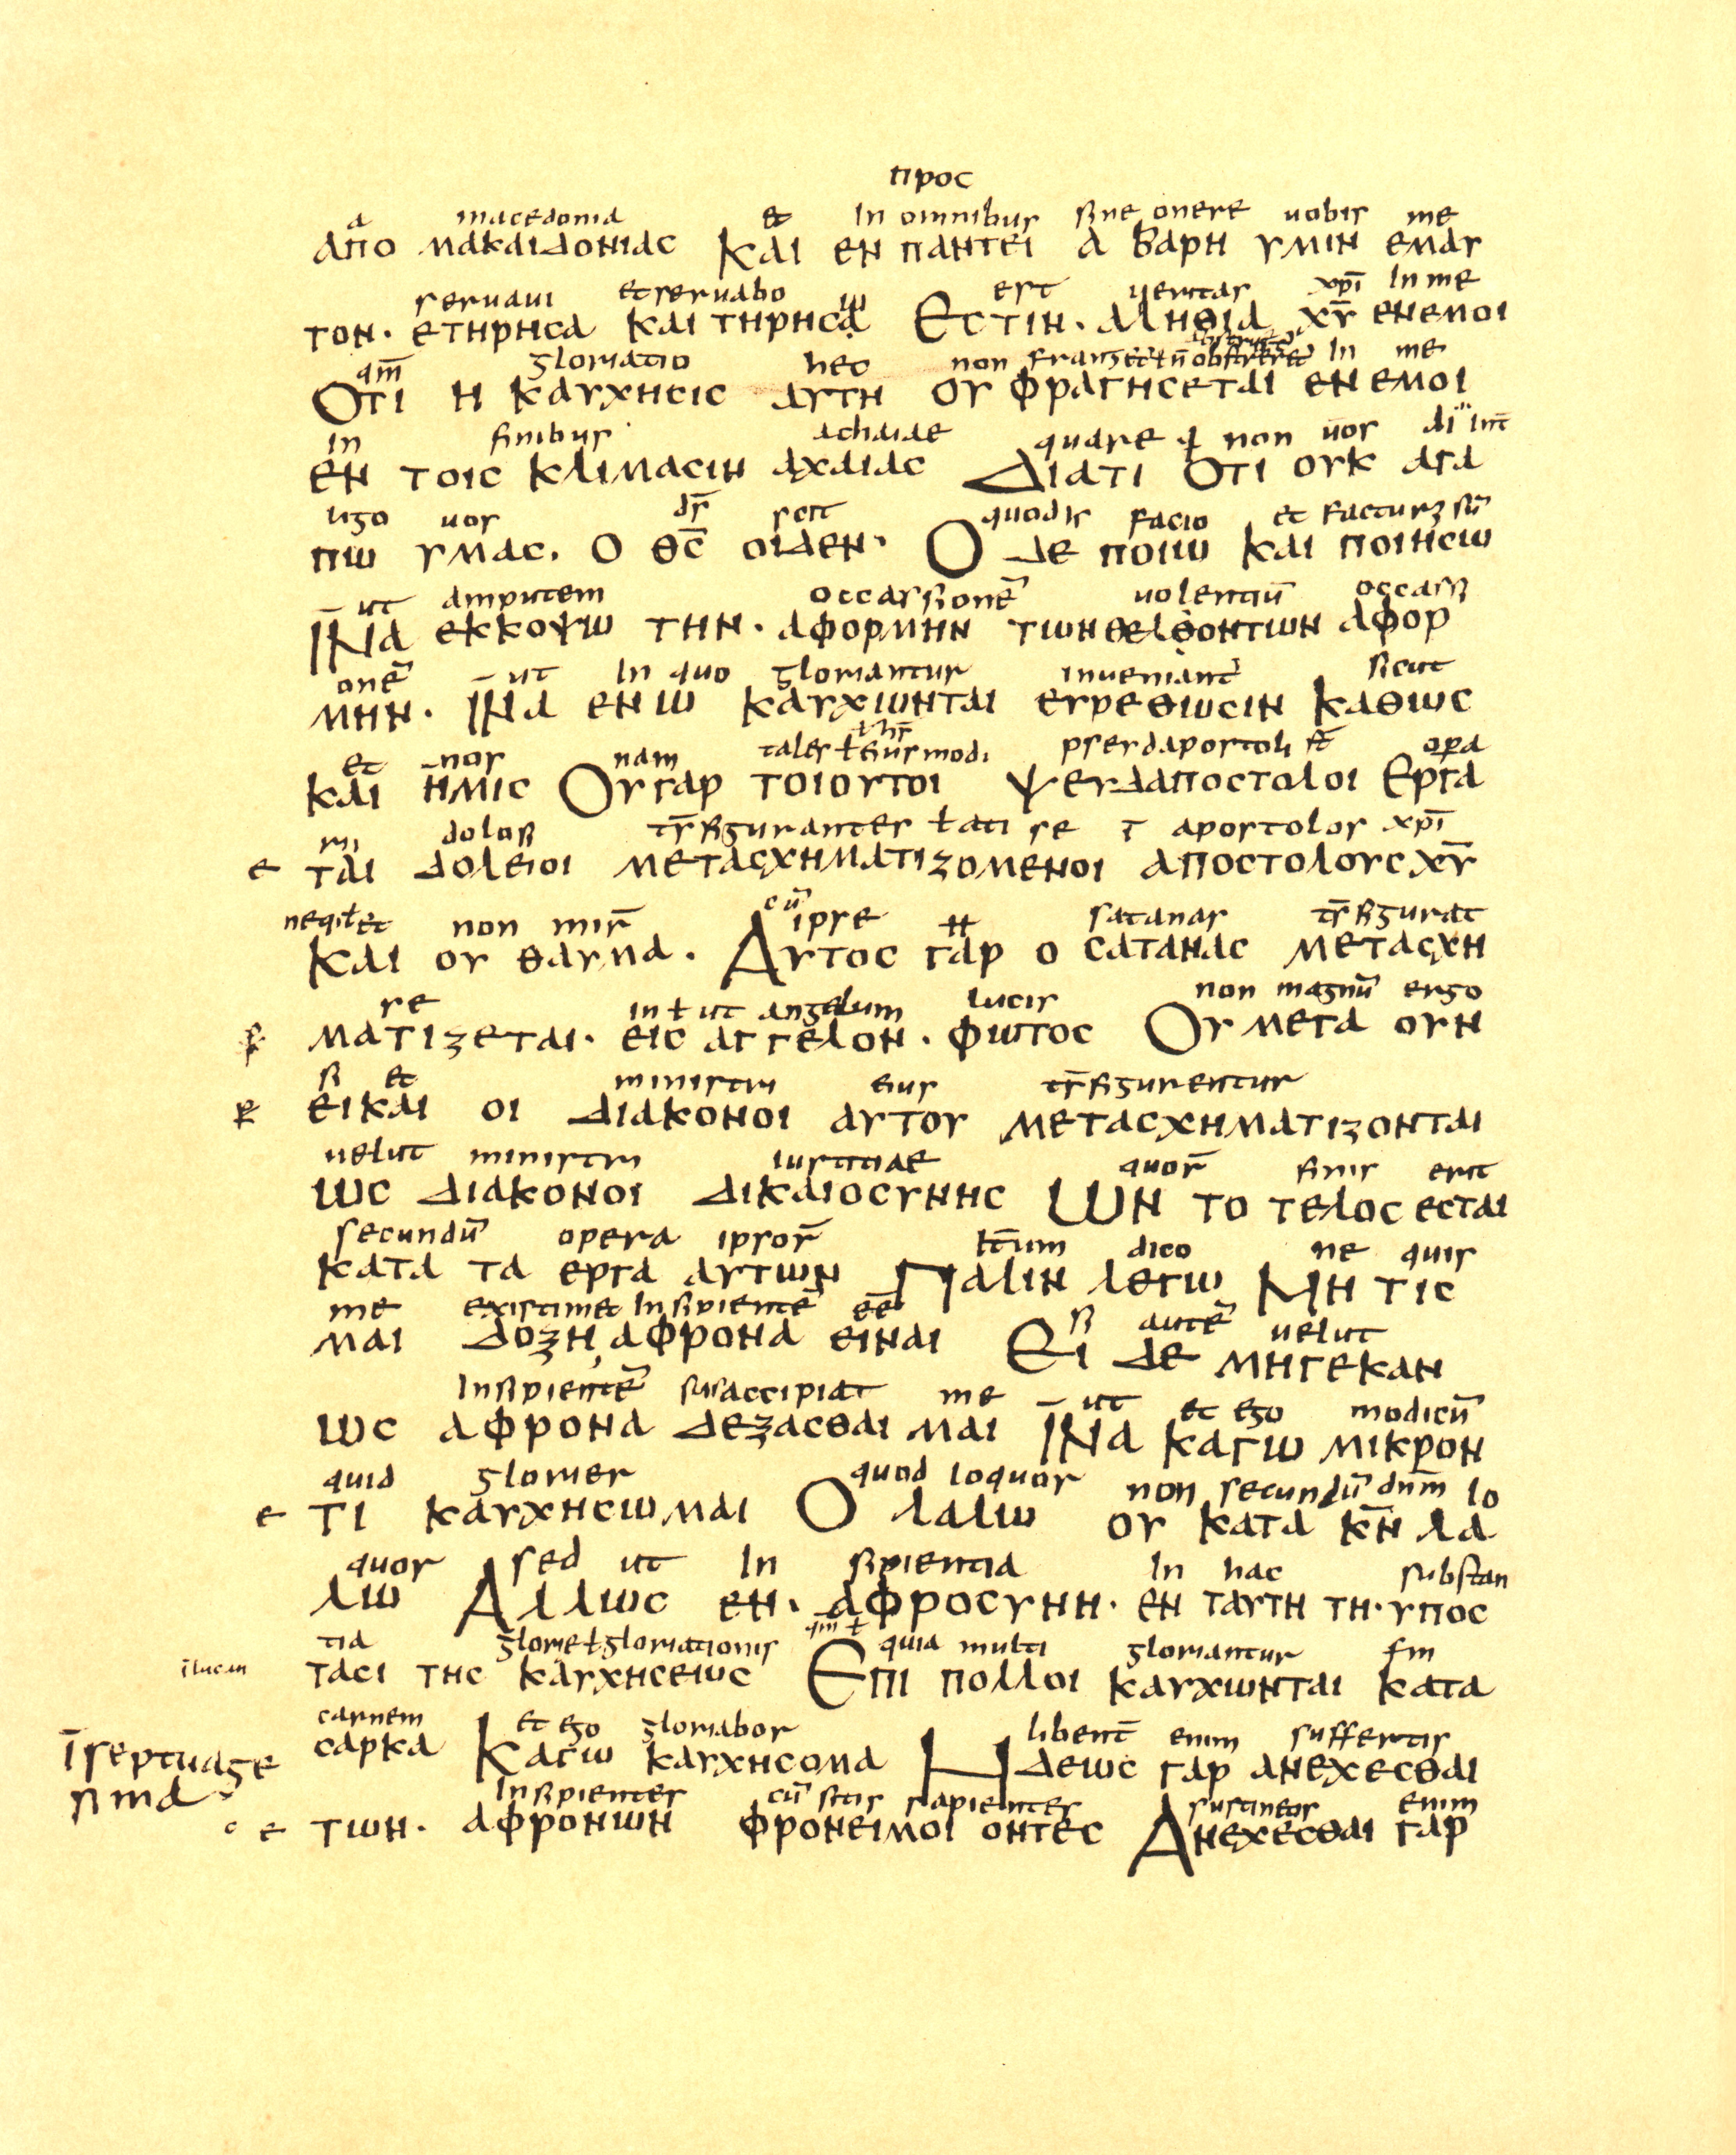 προς
a macedonia et In omnibus sine onere uobis me
απο μακαιδονιας Και εν παντει α βαρη υμιν εμαυ
seruaui et seruabo est ueritas xp̄i In me
τον· ετηρησα και τηρησα ω Εστιν· αληθια χ̄υ εν εμοι
qm̄ gloriatio hec non franget ł n̄ In me
Οτι η καυχησις αυτη ου φραγησεται εν εμοι
In finibus achaiae quare non uos
εν τοις κλιμασιν αχαιας Διατι Οτι ουκ αγα
ligo uos d̄s scit quod is facio et factur sū
πω υμας. ο θ̄ς οιδεν· Ο δε ποιω και ποιησω
ut amputem occassionē uolentiū occassi
Ινα εκκοψω την· αφορμην των θελθοντων αφορ
onē ut In quo gloriantur Inueniant sicut
μην· Ινα εν ω καυχωνται ευρεθωσιν καθως
et nos nam tales ł huiusmodi pseudapostoli opa
και ημις Ου γαρ τοιουτοι ψευδαποστολοι Εργα
rii dolosi tr̄sfigurantes ł ati se ī apostolos xp̄i
ε ται δολειοι μετασχηματιζομενοι αποστολους χ̄υ
neq ł et non mir̄ cū ipse satanas tr̄sfigurat
και ου θαυμα. Αυτος γαρ ο σατανας μετασχη
se in ł ut angelum lucis non magnū ergo
ματιζεται· εις αγγελον. φωτος Ου μεγα ουν
si et ministri eius tr̄sfigurentur
ει και οι διακονοι αυτου μετασχηματιζονται
uelut ministri iustitiae quor̄ finis erit
ως διακονοι δικαιοσυνης Ων το τελος εσται
secundū opera ipsor̄ It̄um dico ne quis
κατα τα εργα αυτων Παλιν λεγω Μη τις
me existimet Insipientē eē si autē uelut
μαι δοξη αφρονα ειναι Ει δε μηγεκαν
Insipientē susaccipiat me ut et ego modicū
ως αφρονα δεξασθαι μαι Ινα καγω μικρον
quid glorier quod loquor non secundū dn̄m lo
ε τι καυχησωμαι Ο λαλω ου κατα κ̄ν λα
quor sed ut In sipientia In hac substan
λω Αλλως εν· αφροσυνη· εν ταυτη τη· υπος
tia glorie ł gloriationis qm̄ ł quia multi gloriantur sm
τασι της καυχησεως Επι πολλοι καυχωνται κατα
carnem et ego gloriabor libent̄ enim suffertis
σαρκα Καγω καυχησομα Ηδεως γαρ ανεχεσθαι
ī septuage
sima
Insipientes cū sitis sapientes sustinetis enim
ε των· αφρονων φρονειμοι οντες Ανεχεσθαι γαρ